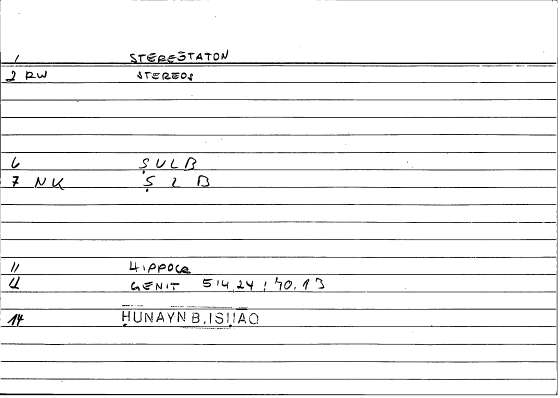 1 STERESTATON
2 RW STEREOS
6 ṢULB
7 NK ṢLB
11 HIPPOCR
GENIT 514,24 ; 40,13
14 ḤUNAYN B. ISḤAQ